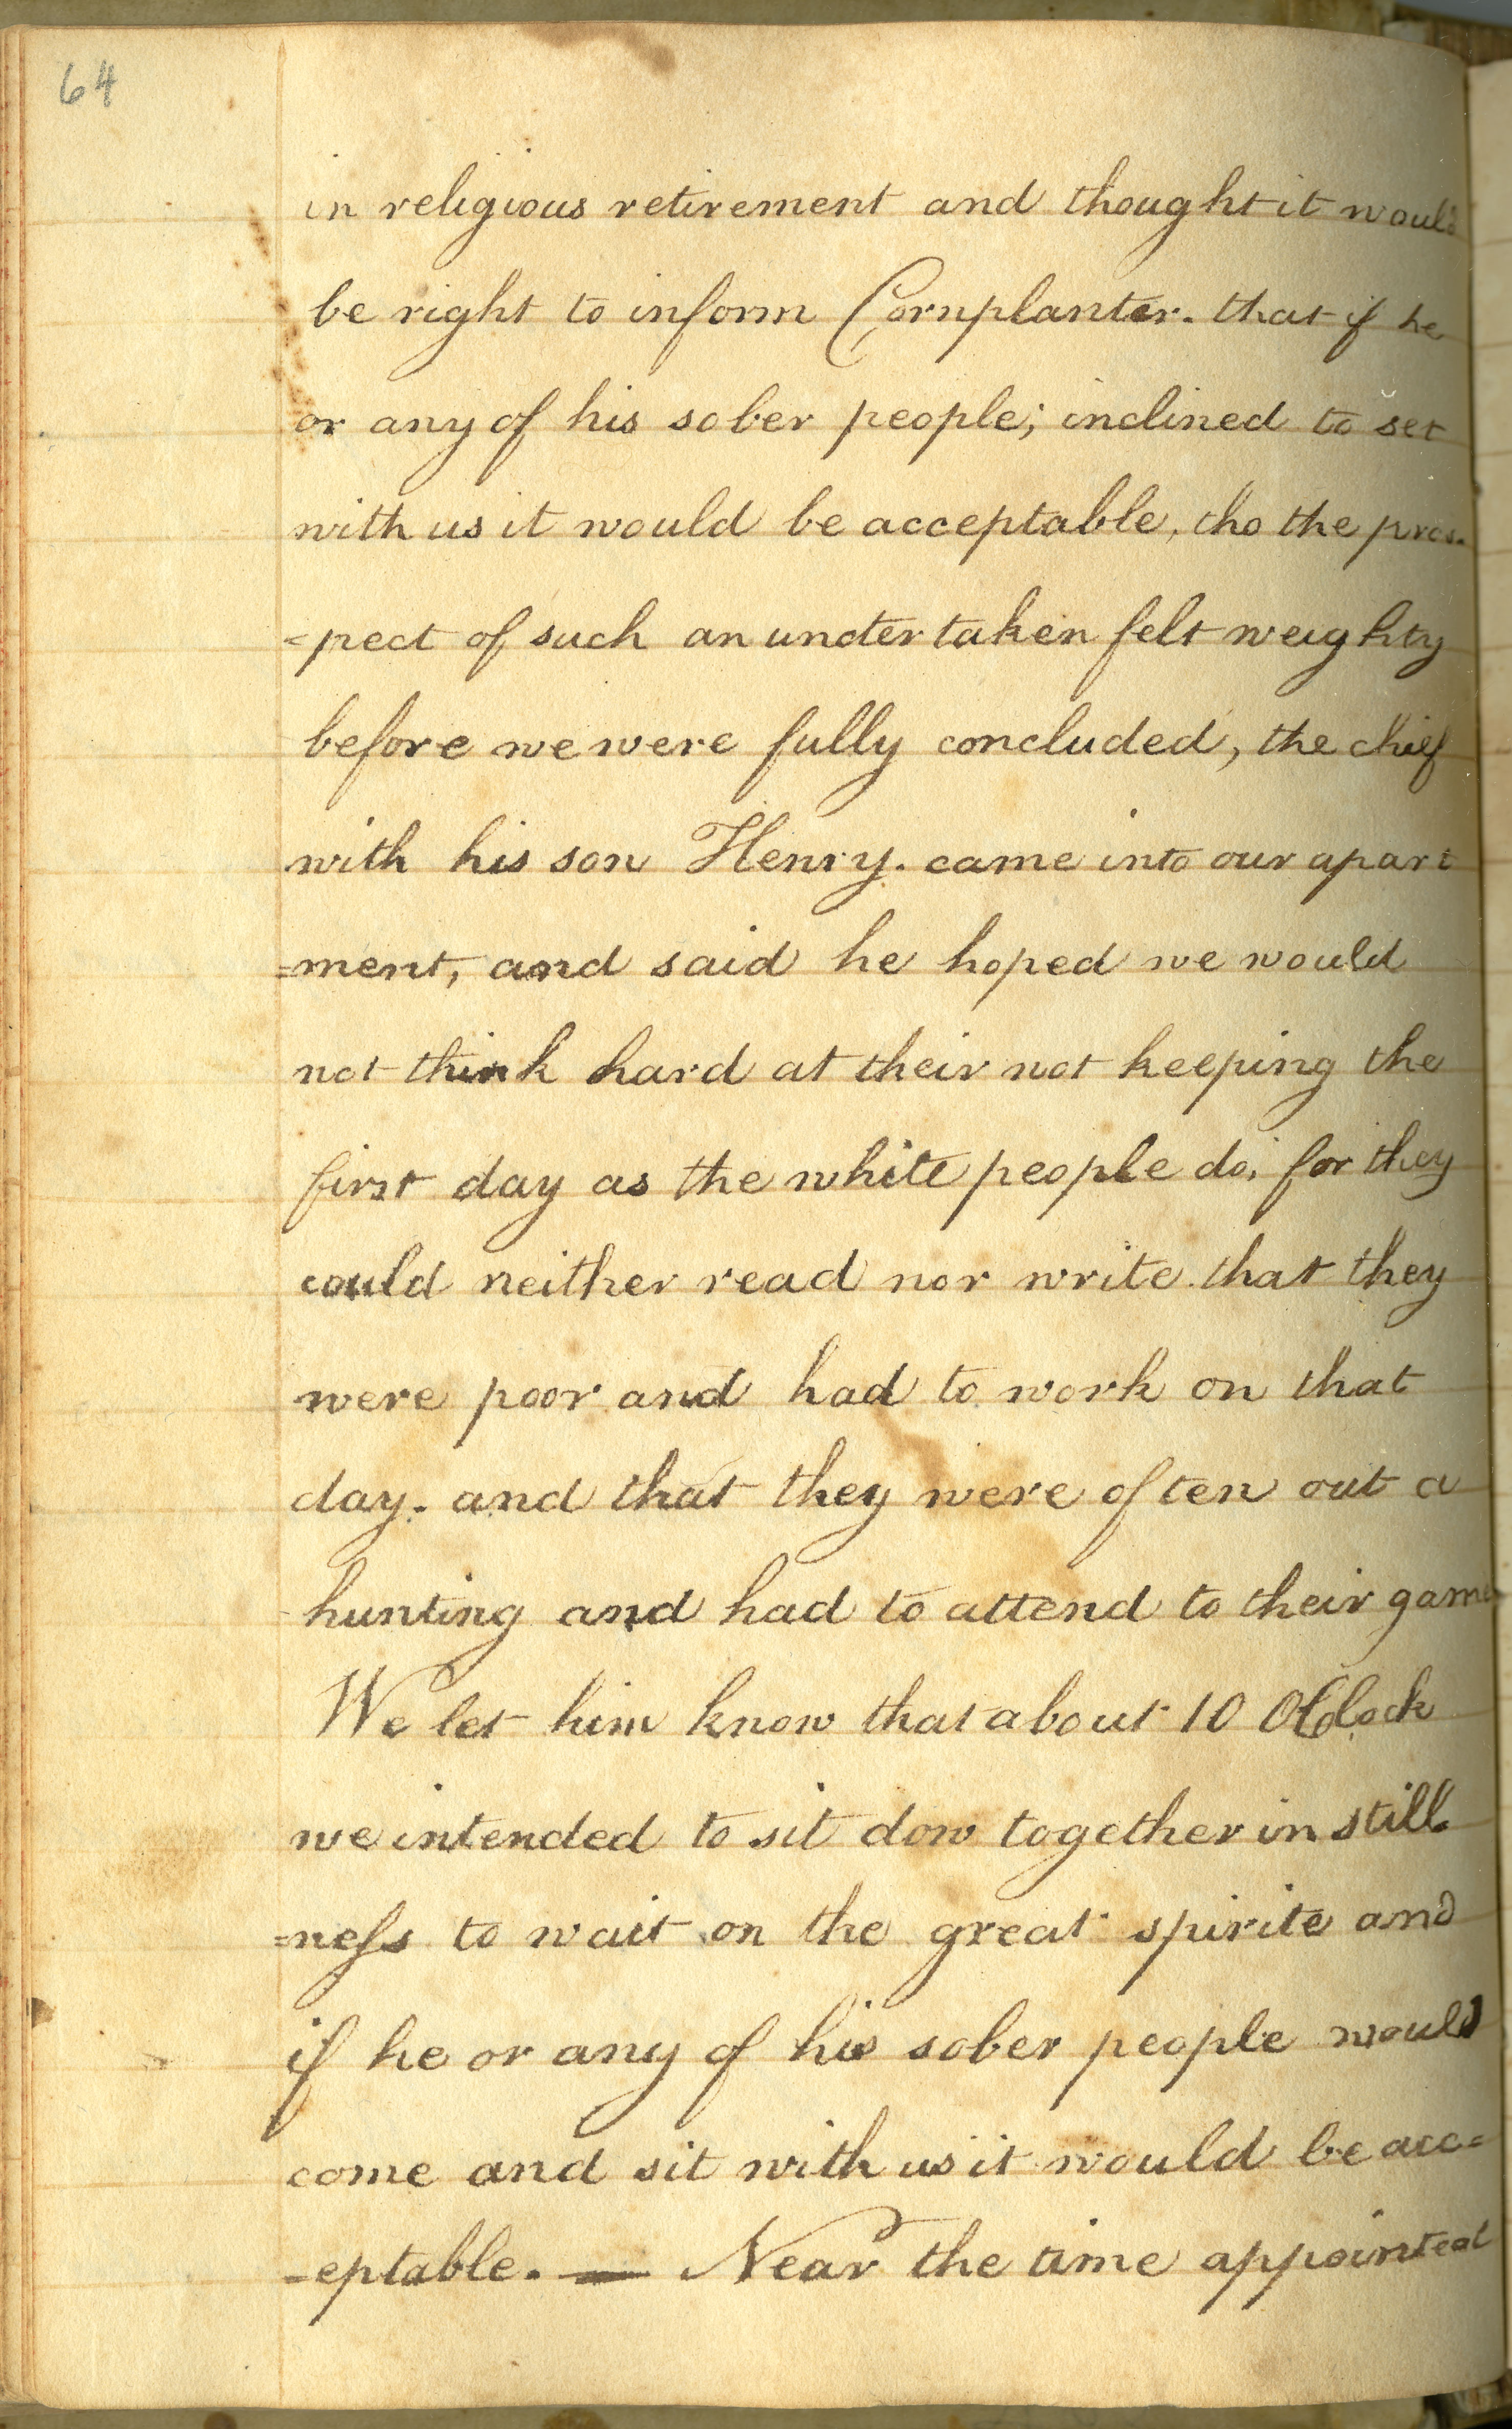 64
in religious retirement and thought it would
be right to inform Cornplanter. that if he
or any of his sober people; inclined to set
with us it would be acceptable, tho the pros-
=pect of such an undertaken felt weighty
before we were fully concluded, the chief
with his son Henry. came into our apart
=ment, and said he hoped we would
not think hard at their not keeping the
first day as the white people do, for they
could neither read nor write. that they
were poor and had to work on that
day. and that they were often out a
hunting and had to attend to their game
We let him know that about 10 OClock
we intended to sit dow together in still
=ness to wait on the great spirite and
if he or any of his sober people would
come and sit with us it would be acc=
=eptable. — Near the time appointed